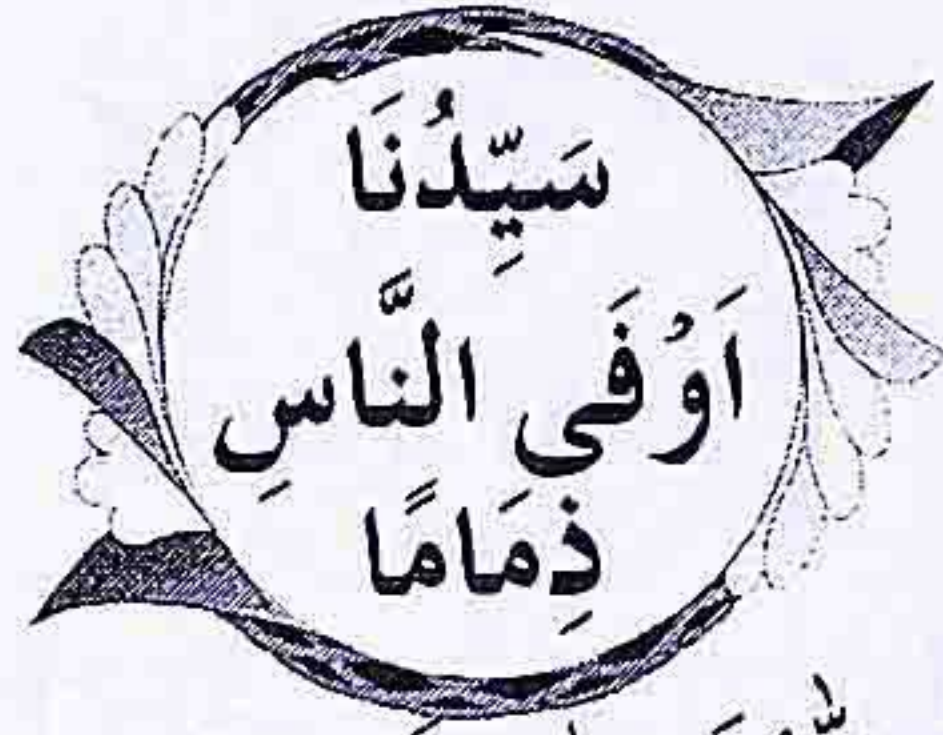 سَيِّدُنَا
اَوْفَى النَّاسِ
ذِمَامًا